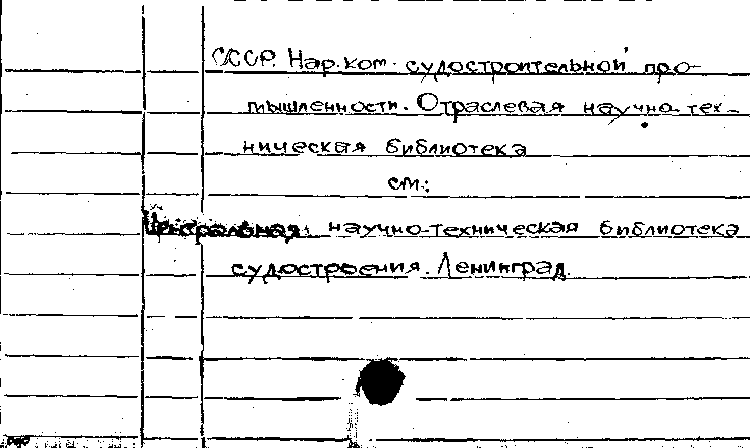 СССР. Нар. ком. судостроительной про-
мышленности. Отраслевая научно-тех-
ническая библиотека
см.:
Центральная научно-техническая библиотека
судостроения. Ленинград.